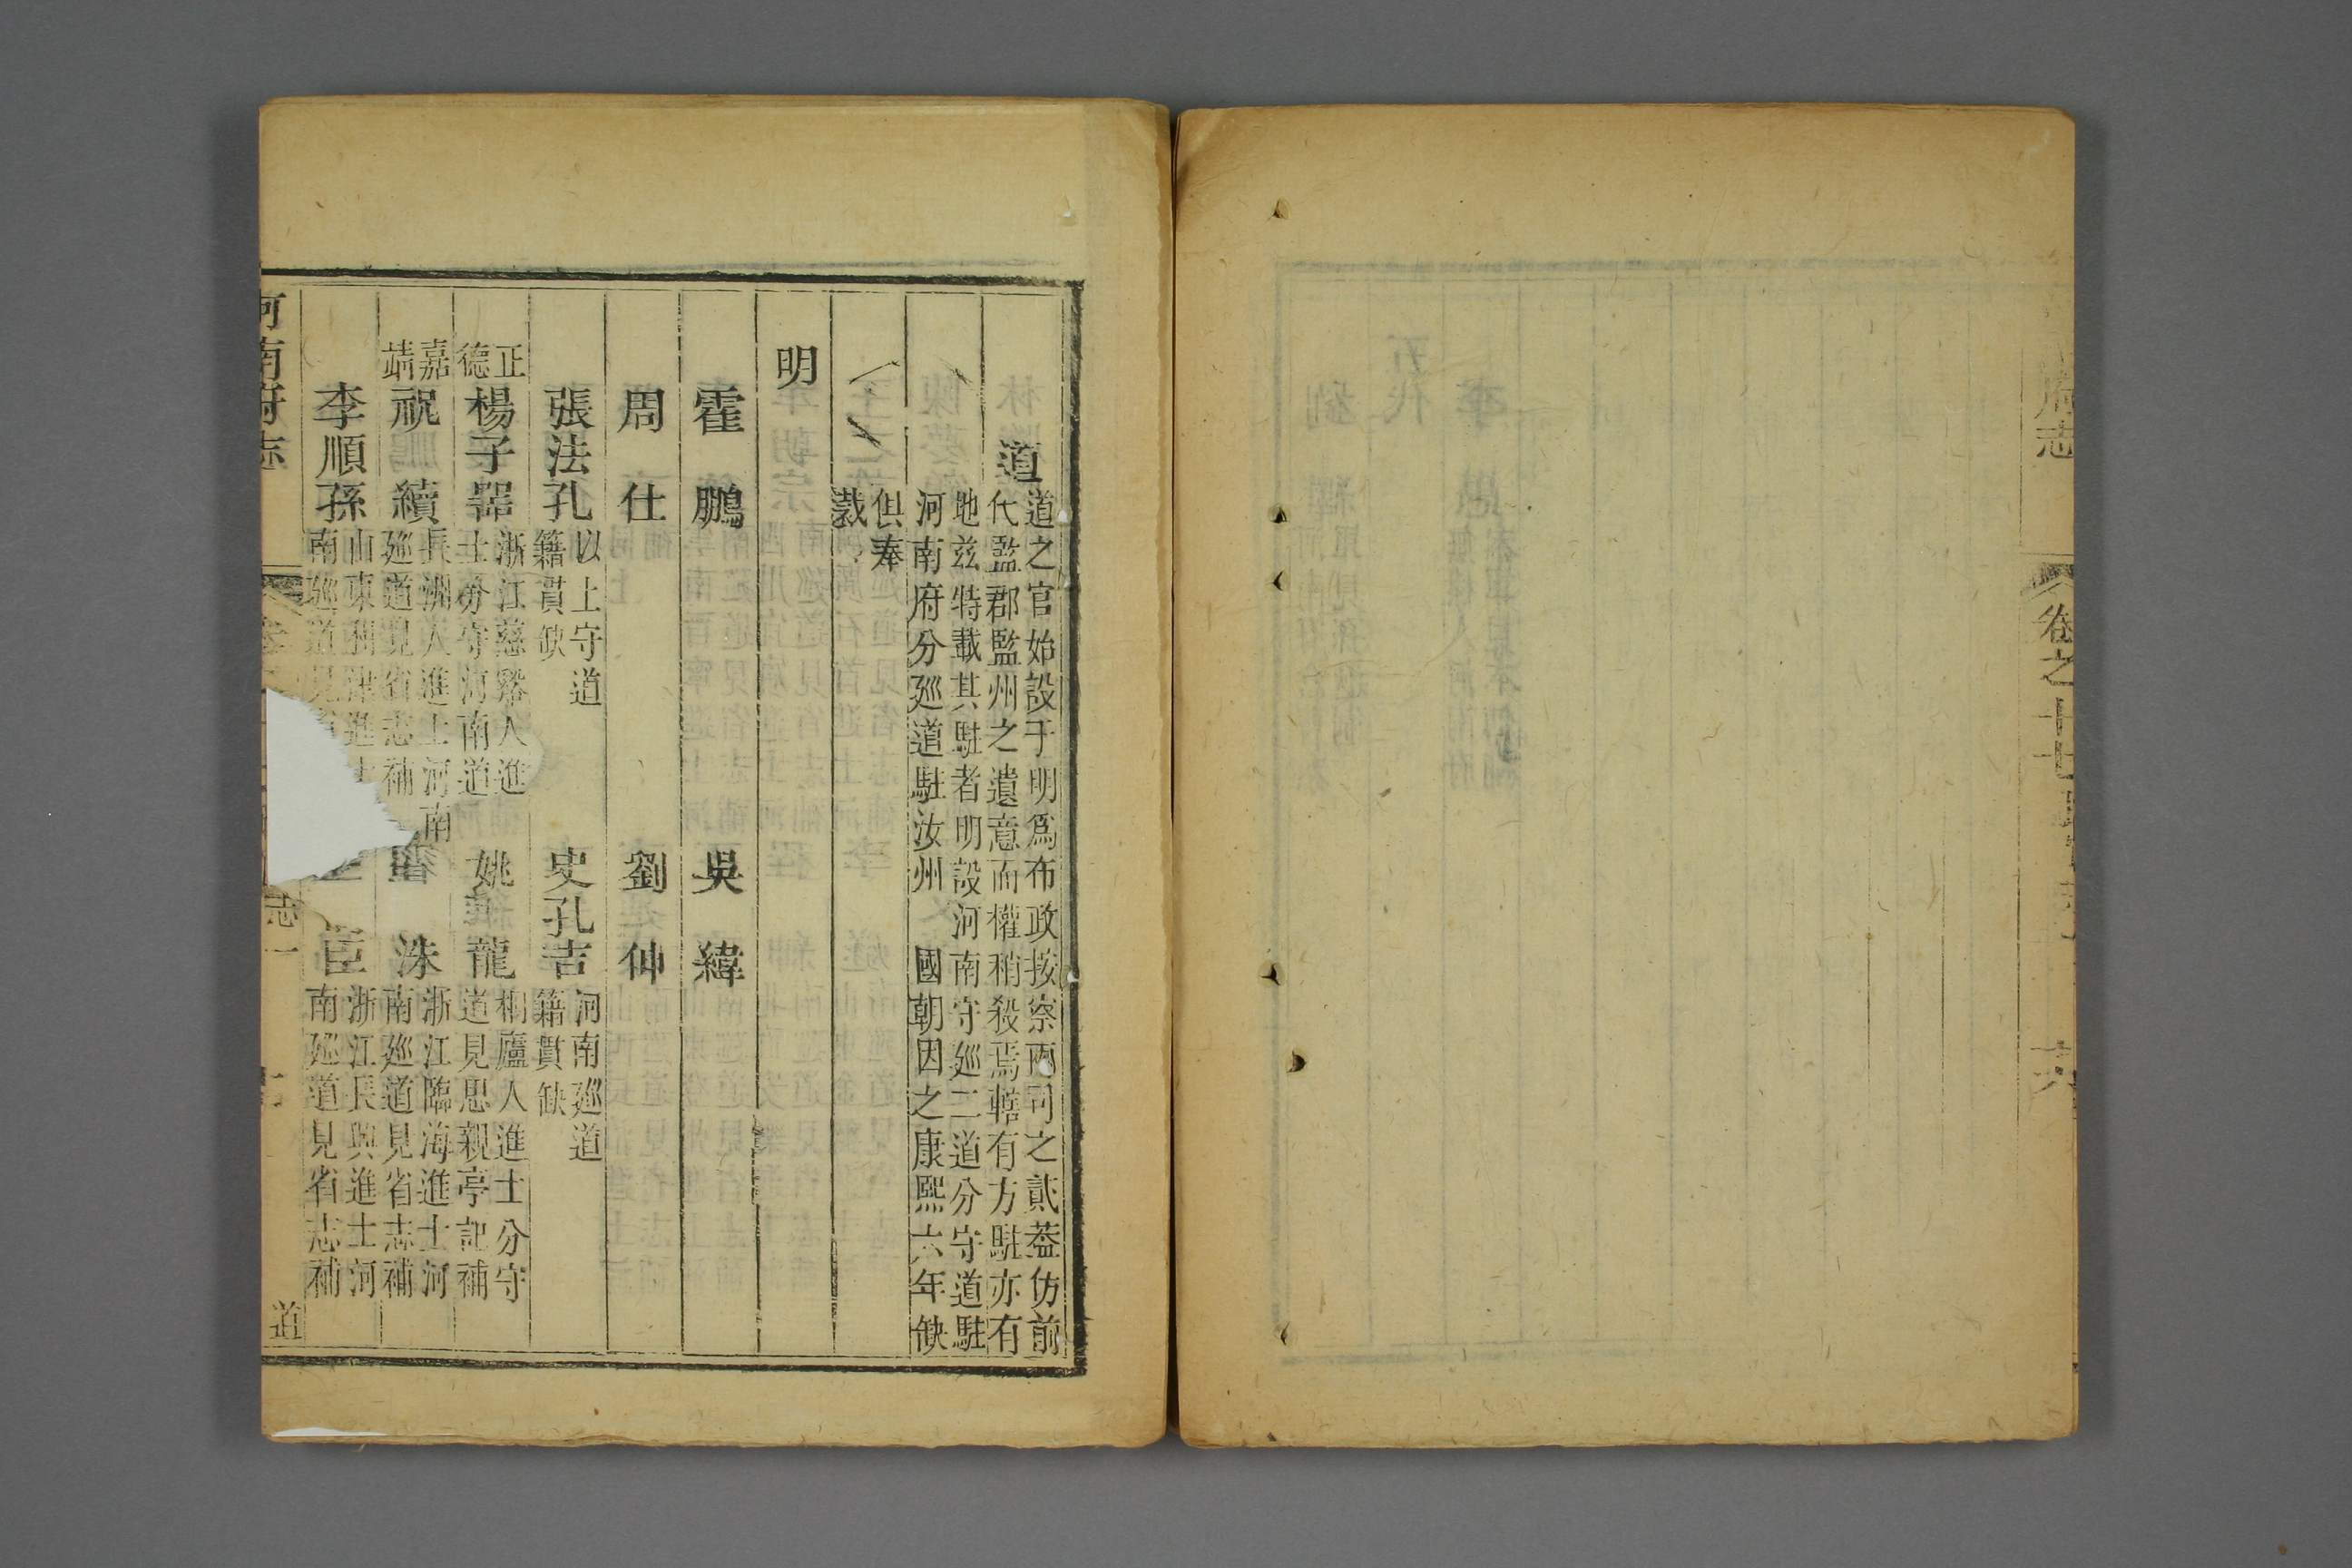 府志
卷之十七
十六
道
道之官始設于明爲布政按察兩司之貳葢仿前
代監郡監州之遺意而權稍殺焉轄有方駐亦有
地兹特載其駐者明設河南守廵二道分守道駐
河南府分廵道駐汝州 國朝因之康熙六年缺
俱奉
裁
明
霍鵬 吳緯
周仕 劉仲
張法孔 以上守道
籍貫缺 史孔吉 河南廵道
籍貫缺
正德 楊子器 浙江慈谿人進
士分守河南道 姚龍 桐廬人進士分守
道見思親亭記補
嘉靖 祝續 長洲人進士河南
廵道見省志補 潘洙 浙江臨海進士河
南廵道見省志補
李順孫 山東利津進士
南廵道見 臣 浙江長興進士河
南廵道見省志補
河南府志
志一
道